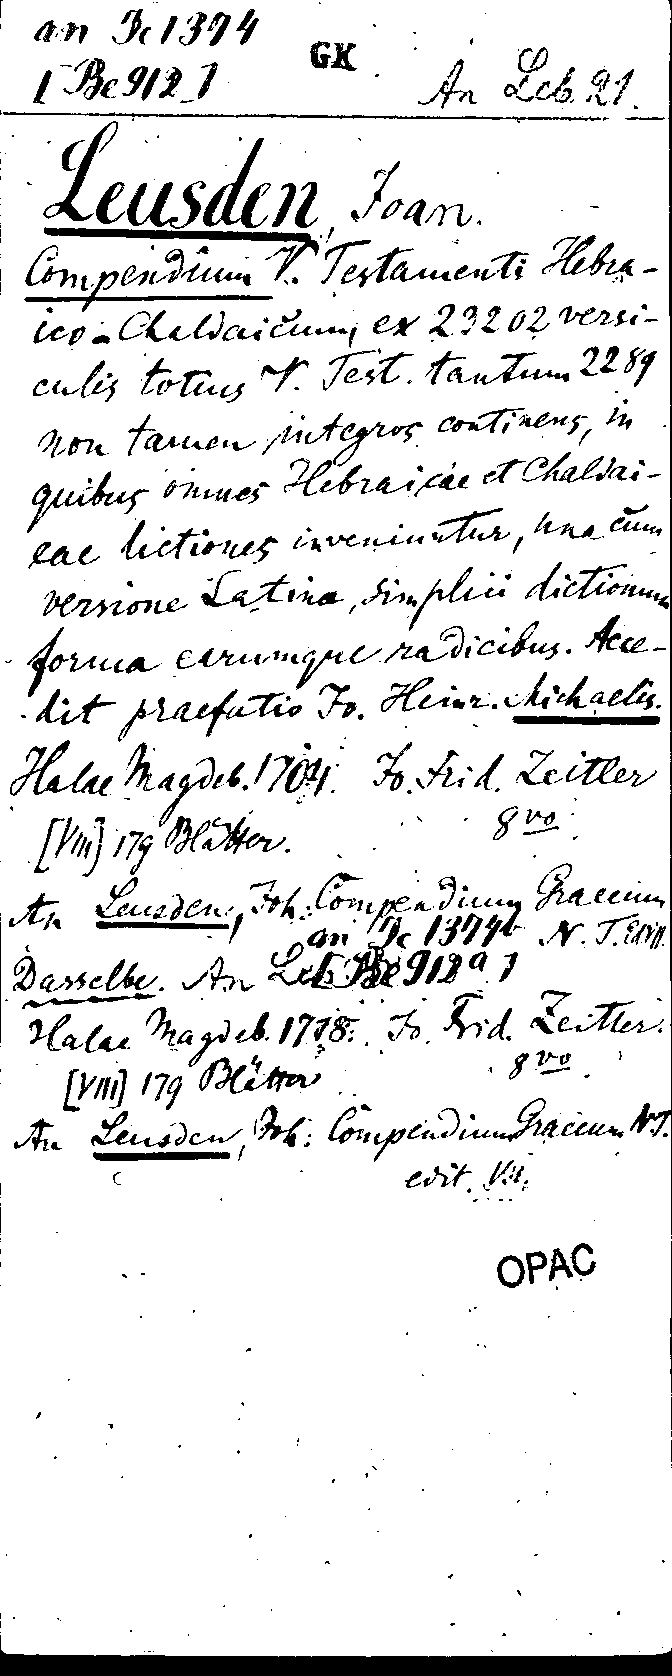 an Jc 1374
[Be 912]
GK
An Lcb. 21.
Leusden, Joan.
Compendium V. Testamenti Hebra-
ico-Chaldaicum, ex 23202 versi-
culis totius V. Test. tantum 2289
non tamen integros continens, in
quibus omnes Hebraicae et Chaldai-
cae dictiones inveniuntur, una cum
versione Latina, simplici dictionum
forma earumque radicibus. Acce-
dit praefatio Jo. Heinr. Michaelis.
Halae Magdeb. 1704. Jo. Frid. Zeitler
8vo.
[VIII] 179 Blätter.
An Leusden, Joh: Compendium Graecum
N. T. Edit.
an Jc 1374
Dasselbe. An
[Be 912 a]
Halae Magdeb. Jo. Frid. Zeitler.
8vo
[VIII] 179 Blätter
An Leusden, Joh: Compendium Graecum N.T.
edit.
OPAC